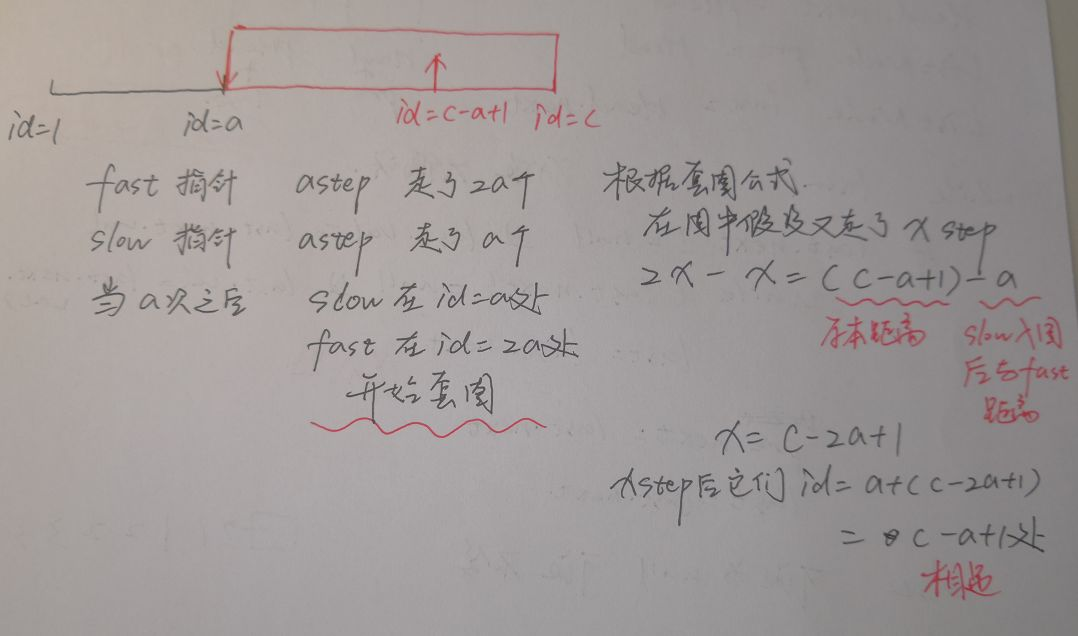 id=1
id=a
id=c-a+1
id=c
fast 指针 astep 走了2a个
slow 指针 astep 走了a个
当a次之后 slow 在id=a处
fast 在id=2a处
开始套圈
根据套圈公式.
在圈中假设又走了 x step
2x - x = (c-a+1) - a
原本距离
slow入圈
后与fast
距离
x = c-2a+1
xstep后它们id= a+(c-2a+1)
= c-a+1处
相遇